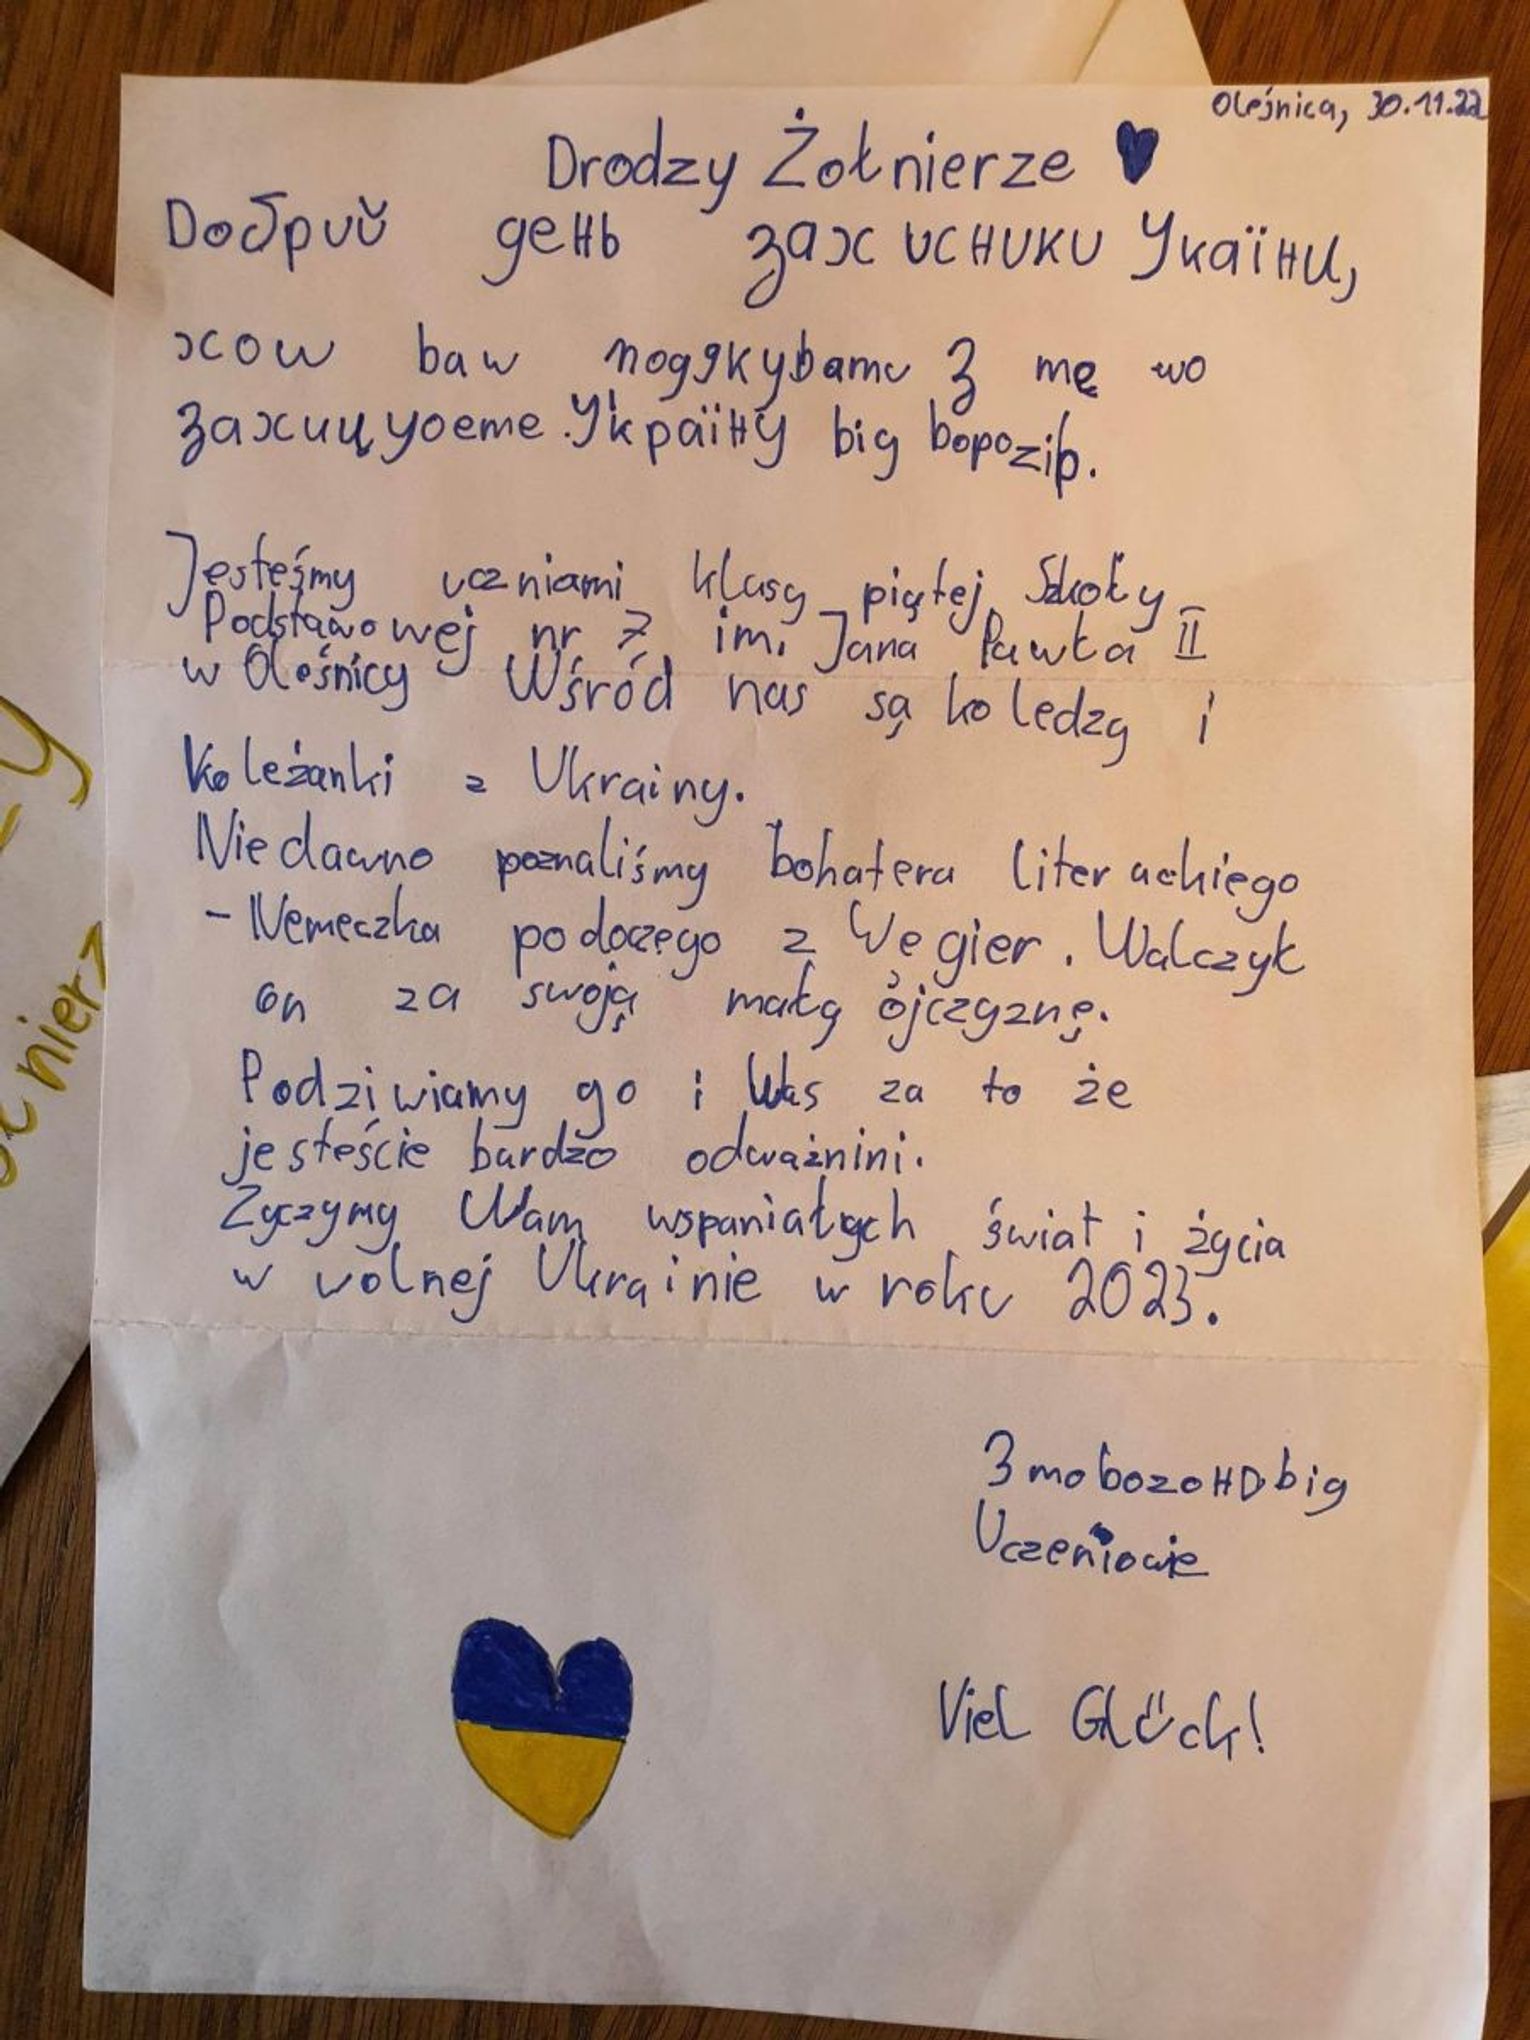 Oleśnica, 30.11.22
Drodzy Żołnierze
Добрий день захисники УкраїИ,
хош вам подякувати З mę wo
захищуоете Україну від ворогів.
Jesteśmy uczniami klasy piątej Szkoły
Podstawowej nr 7 im. Jana Pawła II
w Oleśnicy Wśród nas są koledzy i
Koleżanki z Ukrainy.
Niedawno poznaliśmy bohatera literackiego
- Nemeczka podoczego z Węgier. Walczył
on za swoją małą ojczyznę.
Podziwiamy go i Was za to że
jesteście bardzo odważnini.
Zyczymy Wam wspaniałych świat i życia
w volnej Ukrainie w roku 2023.
З повагою від
Uczeniowie
Viel Glück!
nierz